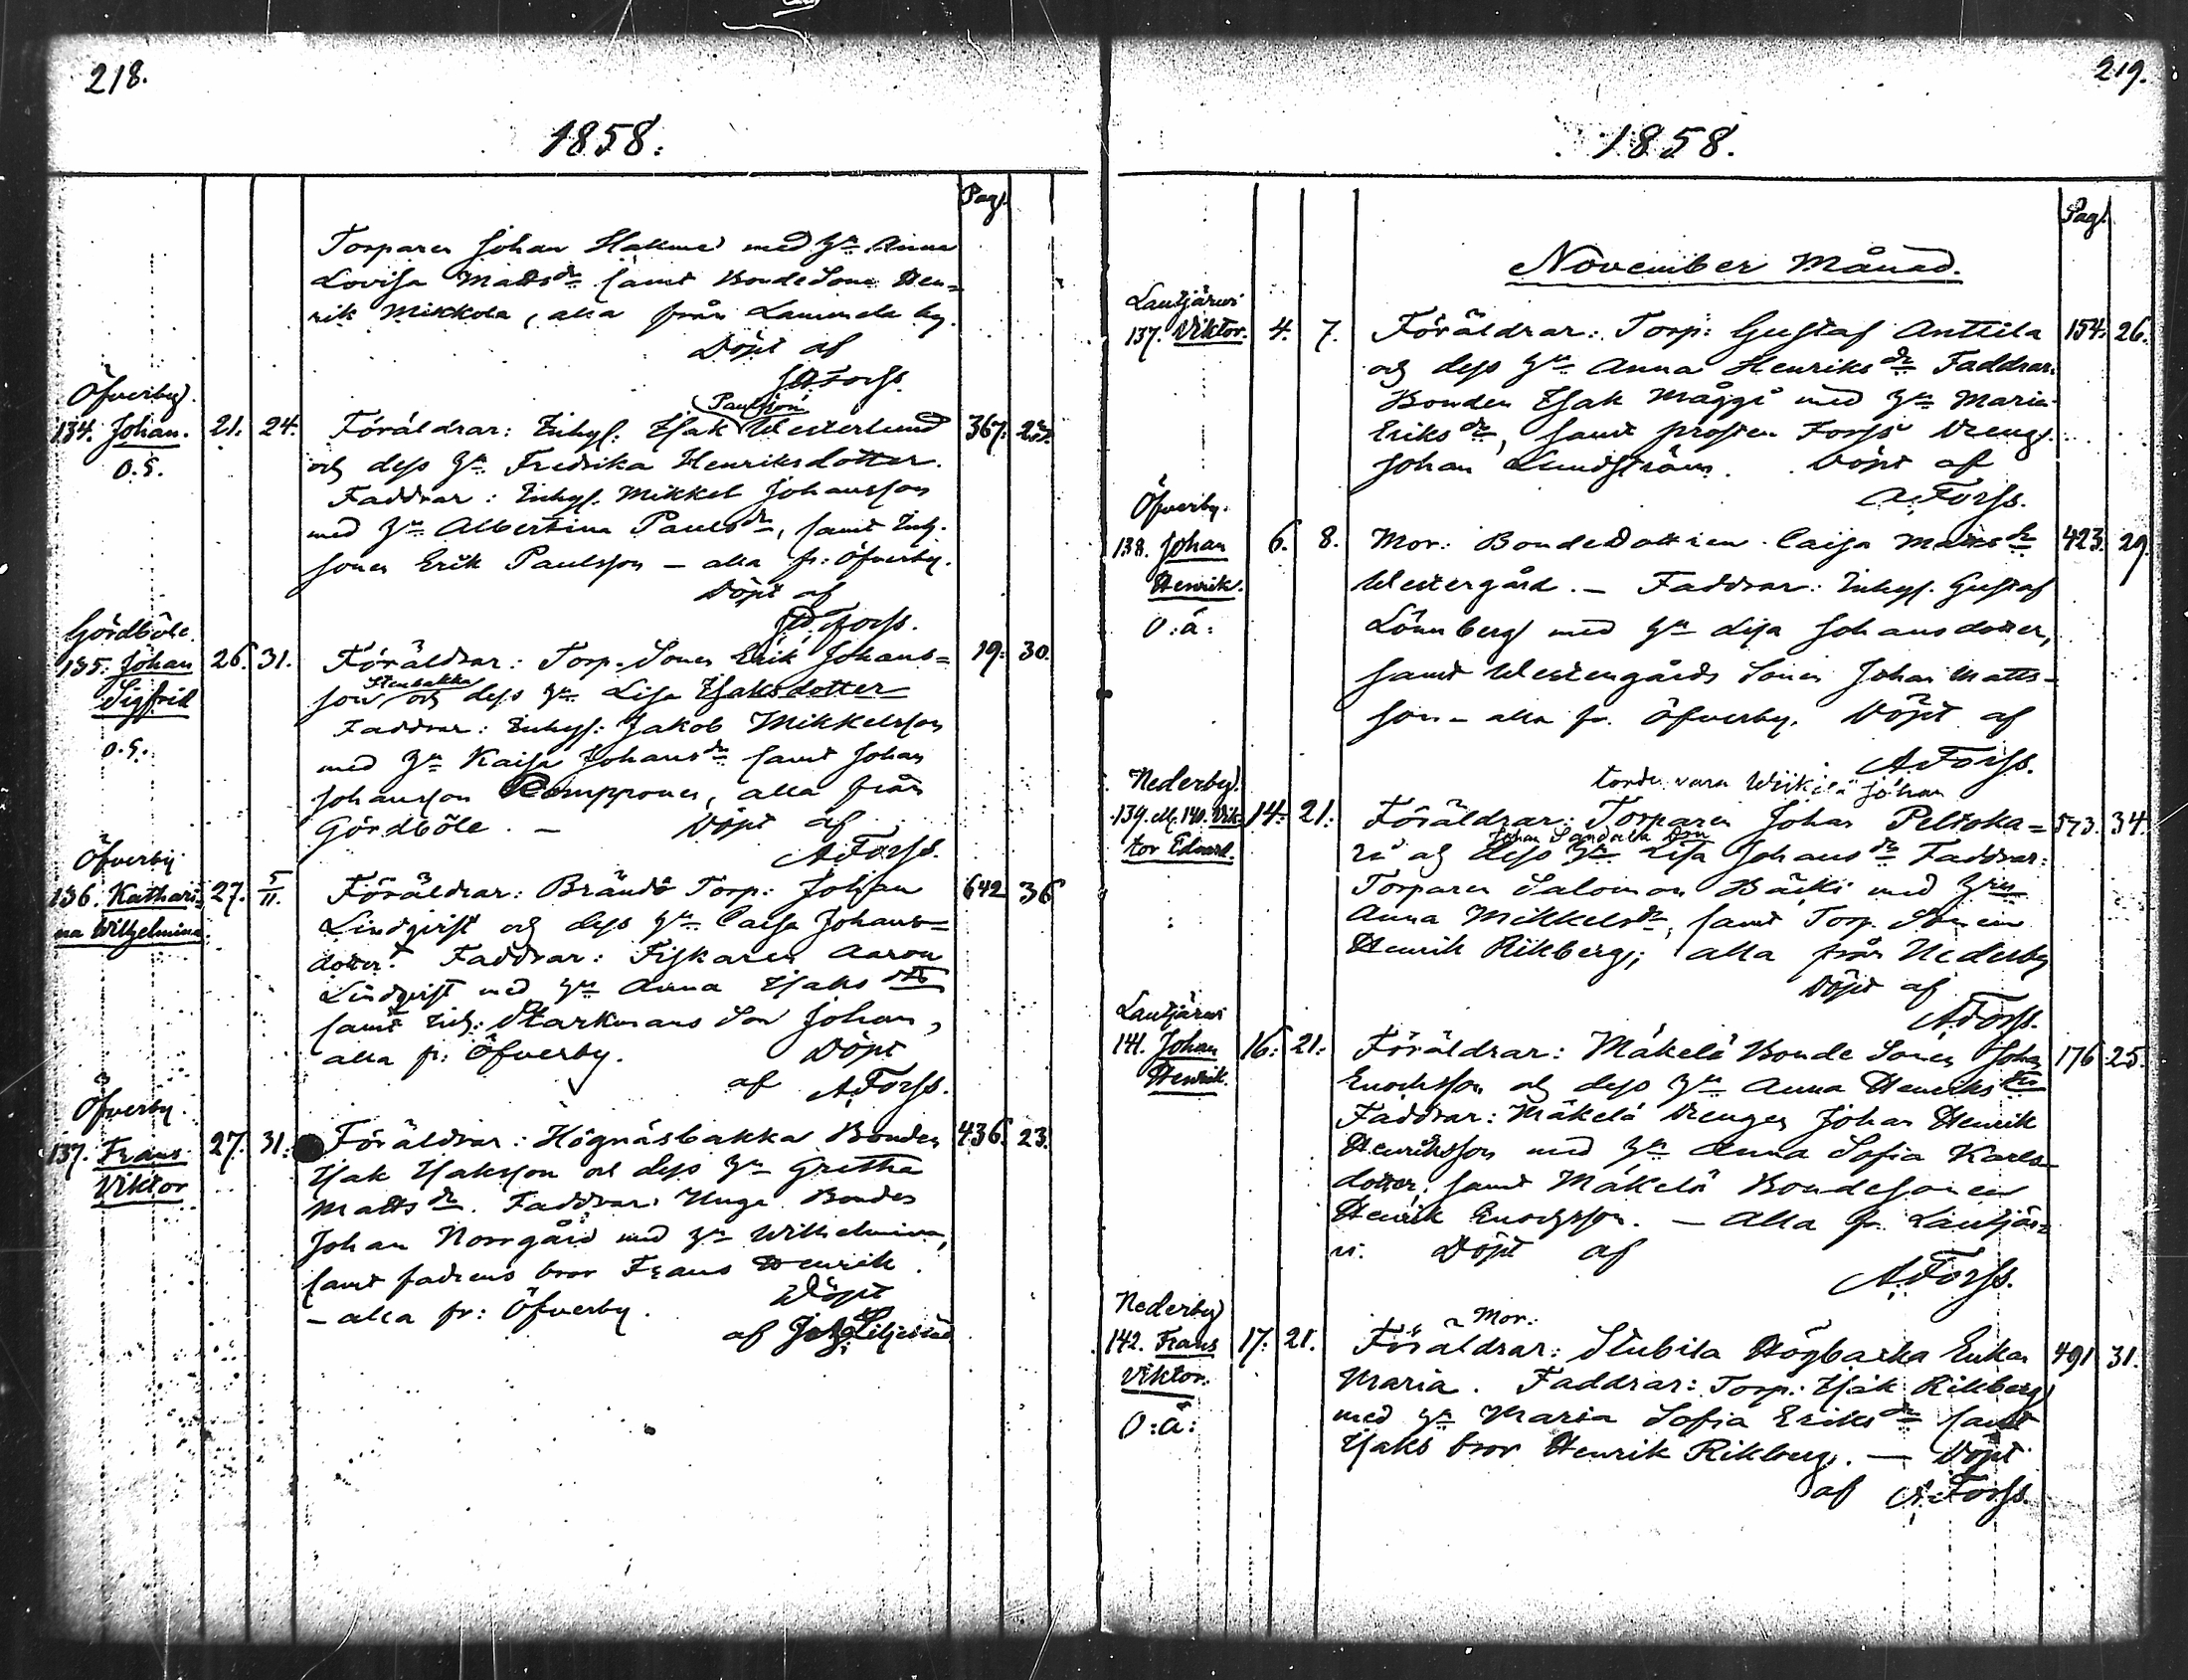 218.
1858.
Pag.
Torparen Johan Hakma med h:u Anna
Lovisa Mattsdr samt Bonde Sonen Hen=
rik Mikkola, alla från Lammela by.
Döpt af
Forss.
Öfverby.
Paulsson
134. Johan. 21. 24. Föräldrar: Inhys: Isak Westerlund 367.
O.S. och dess h:u Fredrika Henriksdotter.
Faddrar: Inhys. Mikkel Johansson
med h:u Albertina Paulsdr, samt Inh.
sonen Erik Paulsson – alla fr: Öfverby.
Döpt af
Forss.
Gördböle.
135. Johan 26. 31. Föräldrar: Torp. Sonen Erik Johans= 19. 30.
Stenbakka
Sigfrid son och dess h:u Lisa Isaksdotter
O.S. Faddrar: Inhys: Jakob Mikkelsson
med h:u Kaisa Johansdr samt Johan
Johansson Romppanen, alla från
Gördböle. – Döpt af
A. Forss.
Öfverby
136. Kathari= 27. 5/11. Föräldrar: Brändö Torp: Johan 642 36
na Wilhelmina. Lindqvist och dess h:u Caisa Johans=
dotter. Faddrar: Fiskaren Aaron
Lindqvist med h:u Anna Isaks dtr
samt Inh: Starkmans Son Johan,
alla fr: Öfverby. Döpt
af A. Forss.
Öfverby.
137. Frans 27. 31. Föräldrar: Högnäsbakka Bonden 436. 23.
Viktor Isak Isaksson och dess h:u Gretha
Mattsdr. Faddrar: Unge Bonden
Johan Norrgård med h:u Wilhelmina,
samt fadrens bror Frans Henrik.
– alla fr: Öfverby. Döpt
af Joh. Liljestrand
219.
1858.
Pag.
November Månad.
Lautjärwi
137. Viktor. 4. 7. Föräldrar: Torp: Gustaf Anttila 154. 26.
och dess h:u Anna Henriksdr Faddrar:
Bonden Isak Mäggi med h:u Maria
Eriksdr, samt prosten Forss' Dreng
Johan Lundström. Döpt af
A. Forss.
Öfverby.
138. Johan 6. 8. Mor: Bondedottren Caisa Mattsdr 423. 29
Henrik. Westergård. – Faddrar: Inhys. Gustaf
O:ä: Lönnberg med h:u Lisa Johansdotter,
samt Westergårds Sonen Johan Matts=
son – alla fr. Öfverby. Döpt af
A. Forss.
torde vara Johan
Nederby.
139. ell. 140. Vik= 14. 21. Föräldrar: Torparen Johan Peltoka= 573. 34.
tor Edvard. ri och dess h:u Lisa Johansdr Faddrar:
Torparen Salomon Bäcki med h:un
Anna Mikkelsdr, samt Torp. Sonen
Henrik Rikberg; alla från Nederby
Döpt af
A. Forss.
Lautjärwi
141. Johan 16. 21. Föräldrar: Mäkelä Bonde Sonen Johan 176 25.
Henrik. Enochsson och dess h:u Anna Henriks dtr
Faddrar: Mäkelä Drengen Johan Henrik
Henriksson med h:u Anna Sofia Karls=
dotter, samt Mäkelä Bondesonen
Henrik Enochsson. – Alla fr. Lautjär=
vi. Döpt af
A. Forss.
Nederby
Mor:
142. Frans 17. 21. Föräldrar: Stubila Högbacka Enkan 491 31.
Viktor. Maria. Faddrar: Torp: Isak Rikberg
O:ä: med h:u Maria Sofia Eriksdr samt
Isaks bror Henrik Rikberg. – Döpt
af A. Forss.